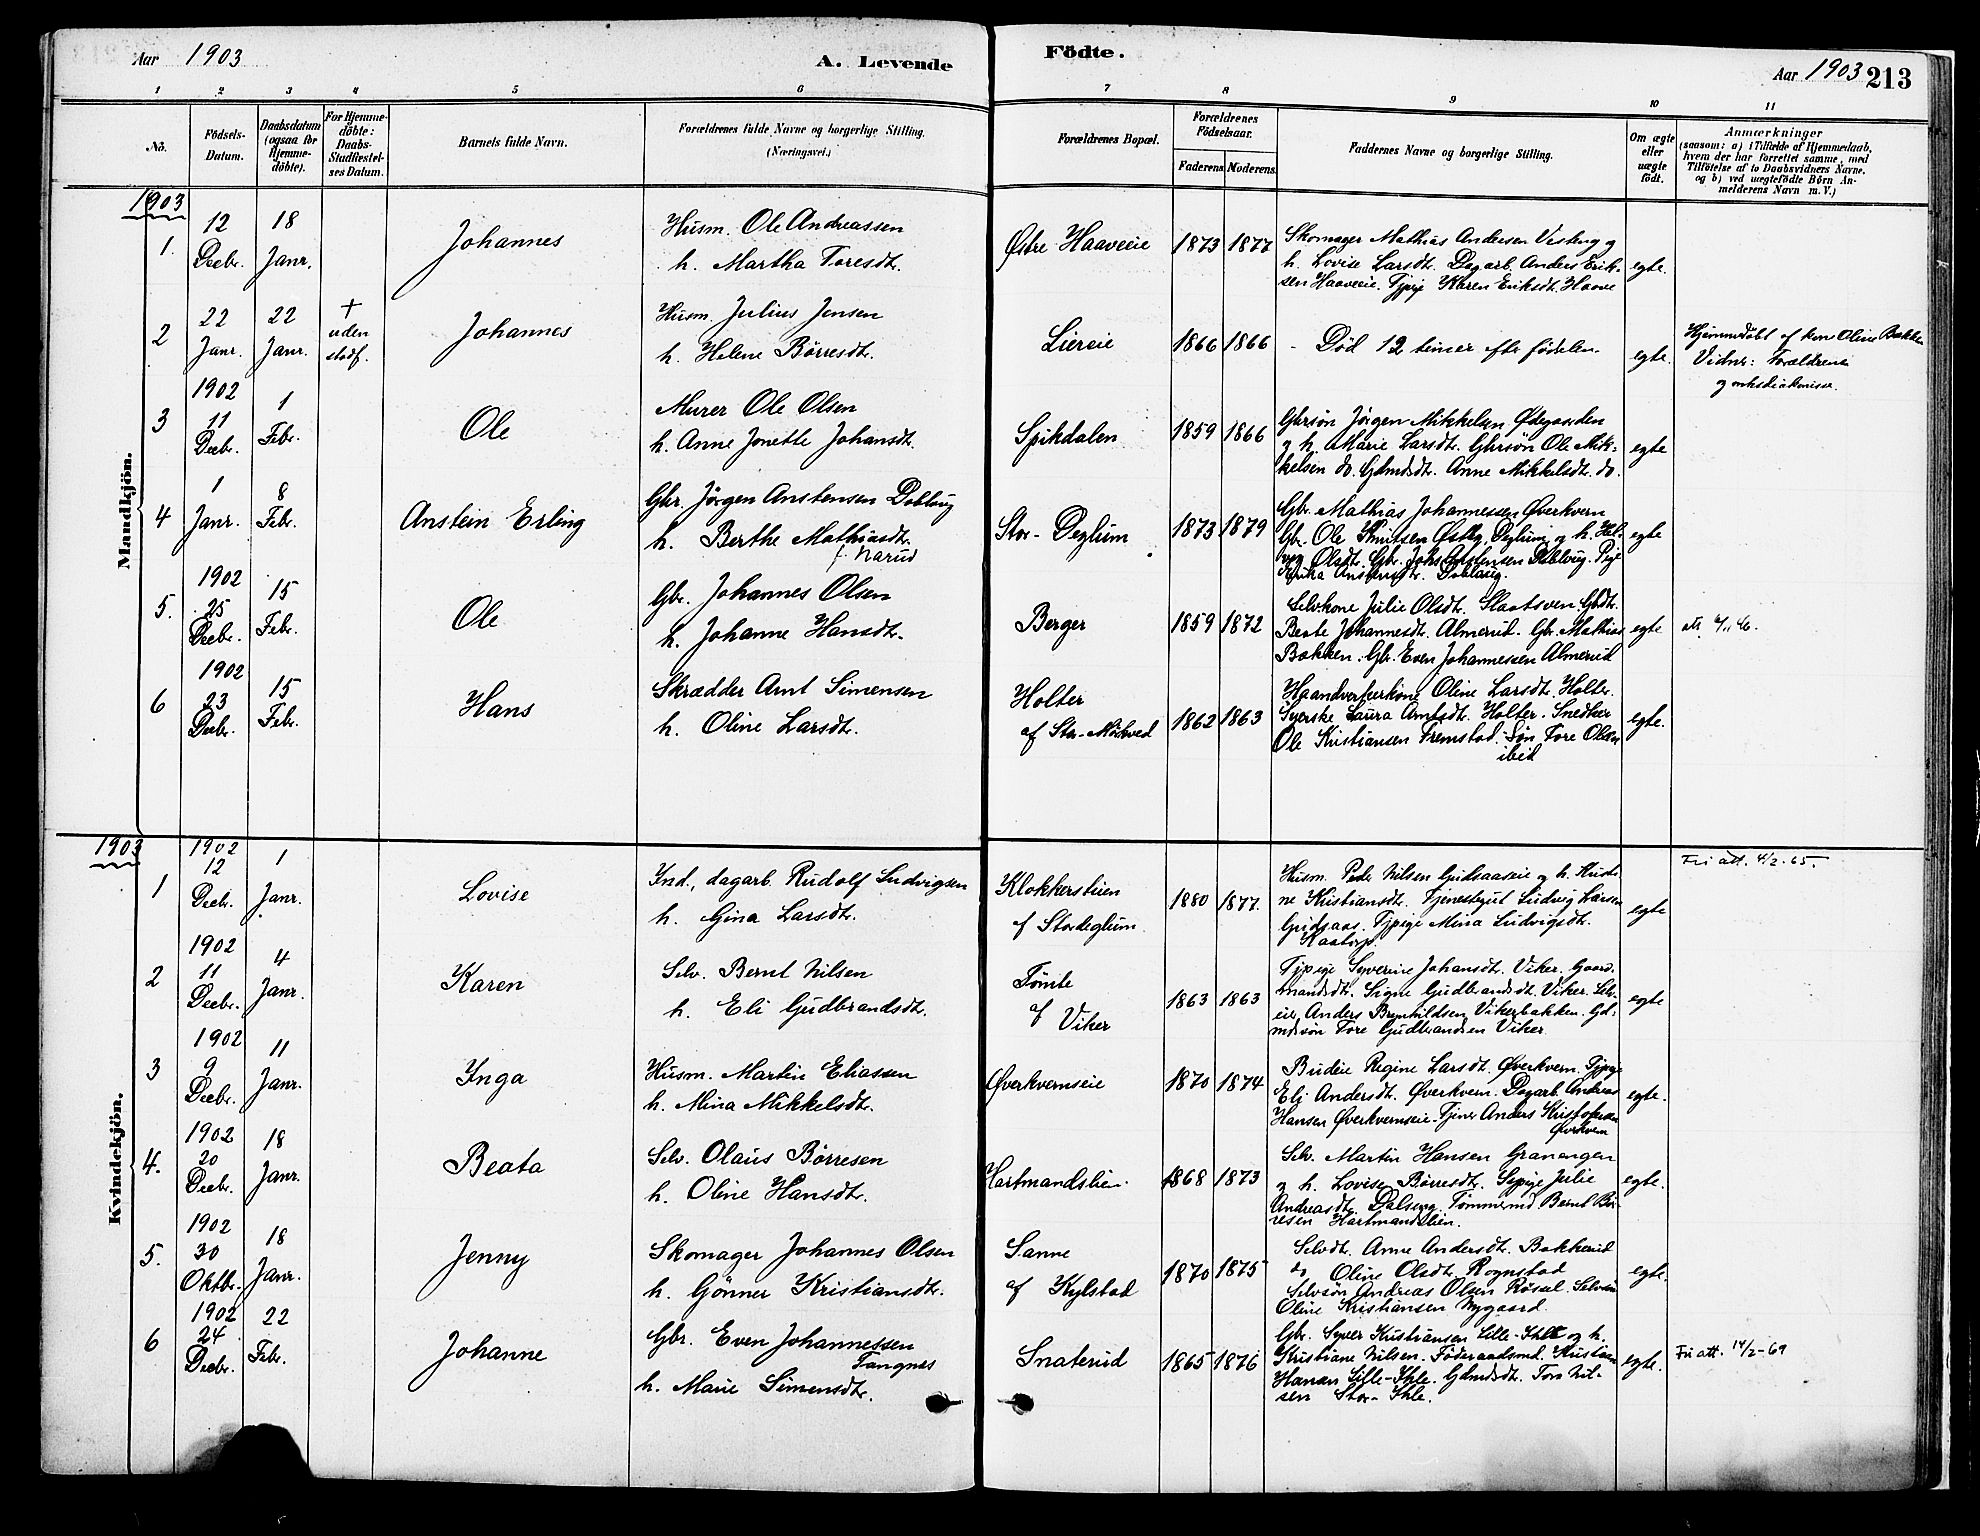 Aar 1903
A. Levende
Födte.
Aar 1903
213
1 2 3 4 5 6 7 8 9 10 11
No.
Födsels-
Datum.
Daabsdatum
(ogsaa for
Hjemme-
döbte).
For Hjemme-
döbte:
Daabs-
Stadfestel-
ses Datum.
Barnets fulde Navn.
Forældrenes fulde Navne og borgerlige Stilling.
(Næringsvei.)
Forældrenes Bopæl.
Forældrenes
Födselsaar.
Faderens. Moderens.
Faddernes Navne og borgerlige Stilling.
Om ægte
eller
uægte
födt.
Anmærkninger
(saasom: a) i Tilfælde af Hjemmedaab,
hvem der har forrettet samme, med
Tilföielse af to Daabsvidners Navne.
og b) ved uægtefödte Börn An-
melderens Navn m. V.)
Mandkjön.
1903
1.
12
Decbr.
18
Janr.
Johannes
Husm. Ole Andreassen
h. Martha Toresdtr.
Østre Haaveeie
1873
1877
Skomager Mathias Andersen Vesteng og
h. Lovise Larsdtr. Dagarb. Anders Erik-
sen Haaveeie. Tjpige Karen Eriksdt. Haave
egte.
2
22
Janr.
22
Janr.
+
uden
stadf.
Johannes
Husm. Julius Jensen
h. Helene Børresdtr.
Liereie
1866
1866
- Død 12 timer efter fødselen.
egte.
Hjemmedøbt af kone Oline Bakken
Vidner: Forældrene
3
1902
11
Decbr.
1
Febr.
Ole
Murer Ole Olsen
h. Anne Jonette Johansdtr.
Spikdalen
1859
1866
Gbrsøn Jørgen Mikkelsen Ødegaarden
og h. Marie Larsdtr. Gbrsøn Ole Mik-
kelsen do. Gdmdsdtr. Anne Mikkelsdtr. do.
egte
4
1
Janr.
8
Febr.
Anstein Erling
Gbr. Jørgen Anstensen Dobloug
h. Berthe Mathiasdtr.
f. Narud
Stor-Deglum
1873
1879
Gbr. Mathias Johannessen Øverkvern
Gbr. Ole Knutsen Østby, Deglum og h. Hel-
vig Olsdtr. Gbr. Johs Anstensen Dobloug. Pige
Anstensdtr. Doblaug.
egte
5.
1902
25
Decbr.
15
Febr.
Ole
Gbr. Johannes Olsen
h. Johanne Hansdtr.
Berger
1859
1872
Selv.kone Julie Olsdtr. Slaatsven. Gbdtr.
Beate Johannesdtr. Almerud. Gbr. Mathias
Bakken. Gbr. Even Johannessen Almerud
egte
6
1902
23
Decbr.
15
Febr.
Hans
Skrædder Arnt Simensen
h. Oline Larsdtr.
Holter
af Stor-Mørkved
1862
1863
Haandverkerkone Oline Larsdtr. Holter.
Syerske Laura Arntsdtr. Holter. Snedker
Ole Kristiansen Fremstad. Søn Tore Olsen
ibid
egte.
Kvindekjön.
1903
1
1902
12
Decbr.
1
Janr.
Lovise
Ind., dagarb. Rudolf Ludvigsen
h. Gina Larsdtr.
Klokkerstuen
af Stordeglum.
1880
1877.
Husm. Peder Nilsen Gudsaaseie og h. Kristi-
ne Kristiansdtr. Tjenestegut Ludvig Larsen
Gudsaas. Tjpige Mina Ludvigsdtr.
Kaatorp.
egte
Fri att. 4/2-65.
2
1902
11
Decbr.
4
Janr.
Karen
Selv. Bernt Nilsen
h. Eli Gudbrandsdtr.
Tømte
af Viker
1863
1863
Tjpige Syverine Johansdtr. Viker. Gaard-
mandsdtr. Signe Gudbrandsdtr. Viker. Selv-
eier Anders Brynhildsen Vikerbakken. Gd-
mdssøn Tore Gudbrandsen Viker.
egte
3
1902
9
Decbr.
11
Janr.
Inga
Husm. Martin Eliassen
h. Mina Mikkelsdtr.
Øverkverneie
1870
1874
Budeie Regine Larsdt. Øverkvern. Tjpige
Eli Andersdtr. Øverkvern. Dagarb. Andreas
Hansen Øverkverneie. Tjener Anders Kristofersen
Øverkvern
egte.
4.
1902
20
Decbr.
18
Janr.
Beata
Selv. Olaus Børresen
h. Oline Hansdtr.
Hartmandslien.
1868
1873
Selv. Martin Hansen Granengen
og h. Lovise Børresdtr. Sypige Julie
Andreasdtr. Dalseng. Tømmermd Bernt Bør-
resen Hartmandslien.
egte.
5.
1902
30
Oktbr.
18
Janr.
Jenny
Skomager Johannes Olsen
h. Gønner Kristiansdtr.
Sanne
af Kylstad
1870
1875
Selvdtr. Anne Andersdtr. Bakkerud
do Oline Olsdtr. Rognstad
Selvsøn Andreas Olsen Røsæl. Selvsøn
Oline Kristiansen Nygaard.
egte.
6
1902
24
Decbr.
22
Febr.
Johanne
Gbr. Even Johannessen
Tangnes
h. Marie Simensdtr.
Snaterud
1865
1876
Gbr. Syver Kristiansen Lille-Ihle og h.
Kristiane Nilsen. Föderaadsmd. Kristian
Hansen Lille-Ihle. Gdmdsdtr. Tora Nil-
sen Stor-Ihle.
egte.
Fri att. 14/2-69